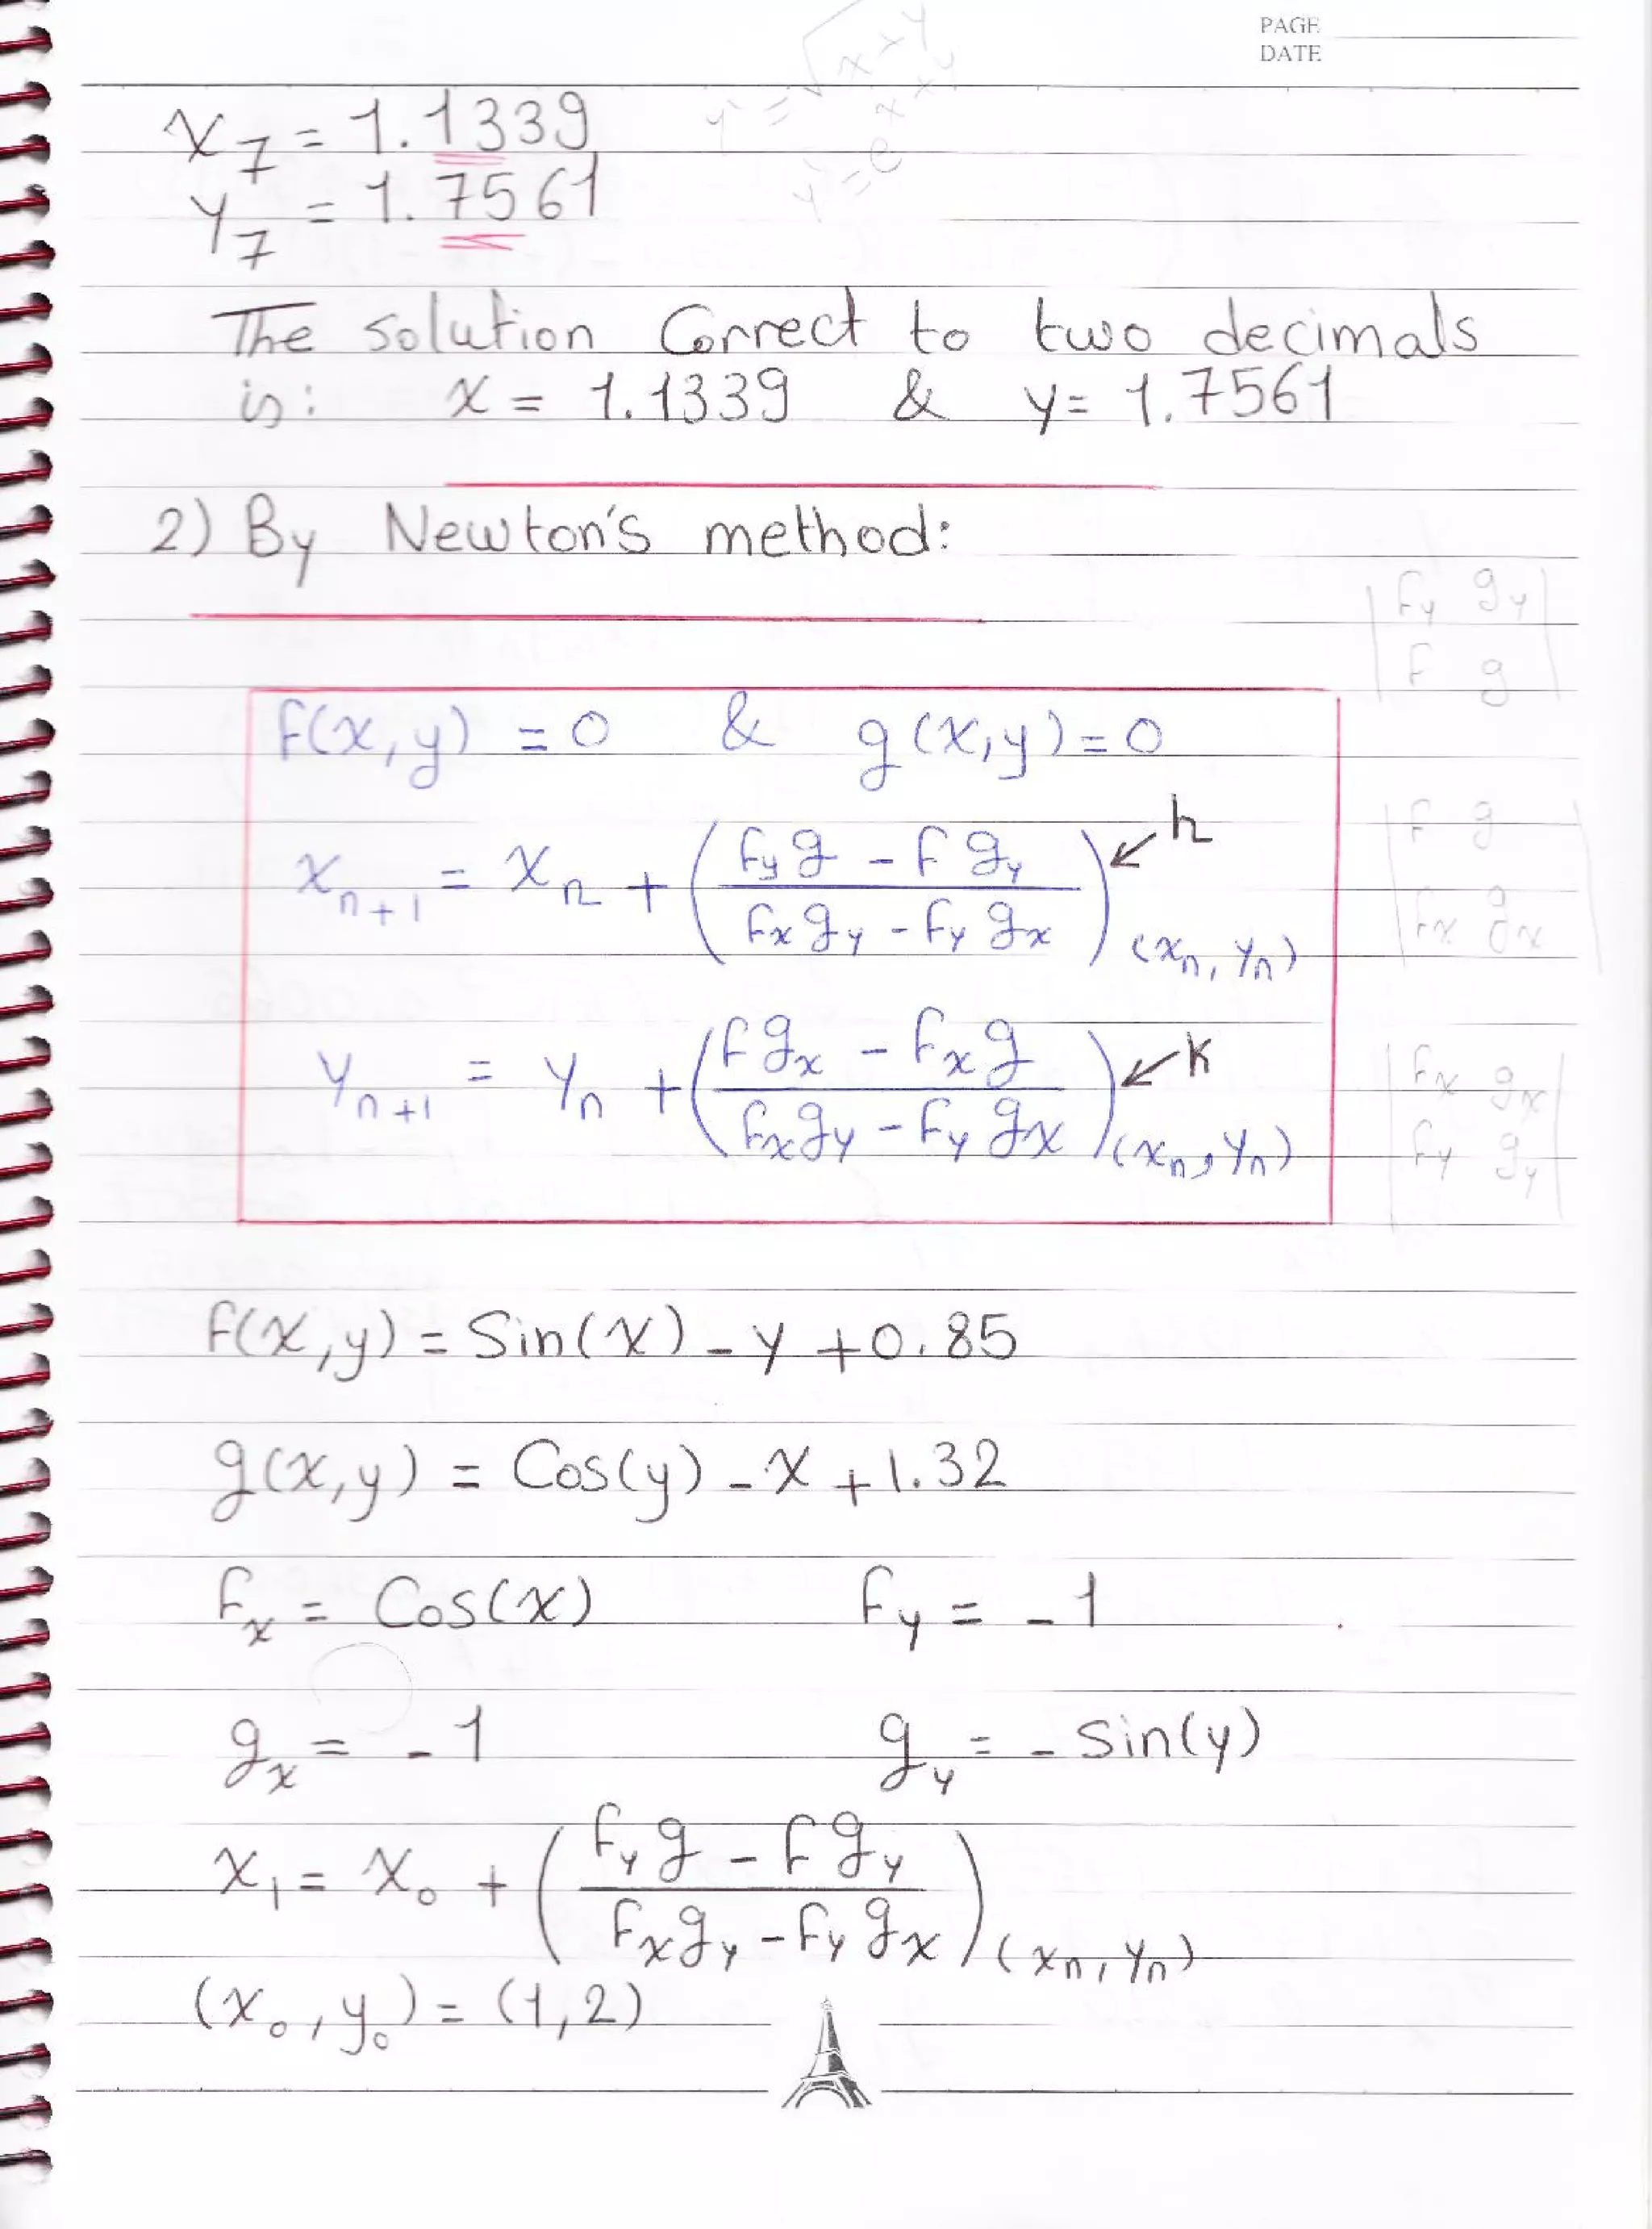 PAGE
DATE
y = √x x y
y = e^x x y
x₇ = 1.1339
y₇ = 1.7561
The solution Correct to two decimals
is: x = 1.1339 & y = 1.7561
2) By Newton's method:
|fy gy|
|f g|
f(x,y) = 0 & g(x,y) = 0
xₙ₊₁ = xₙ + ( (fy g - f gy) / (fx gy - fy gx) ) (xₙ, yₙ) ↙ h
|f g|
|fx gx|
yₙ₊₁ = yₙ + ( (f gx - fx g) / (fx gy - fy gx) ) (xₙ, yₙ) ↙ k
|fx gx|
|fy gy|
f(x,y) = Sin(x) - y + 0.85
g(x,y) = Cos(y) - x + 1.32
fx = Cos(x) fy = -1
gx = -1 gy = - Sin(y)
x₁ = x₀ + ( (fy g - f gy) / (fx gy - fy gx) ) (xₙ, yₙ)
(x₀, y₀) = (1,2)